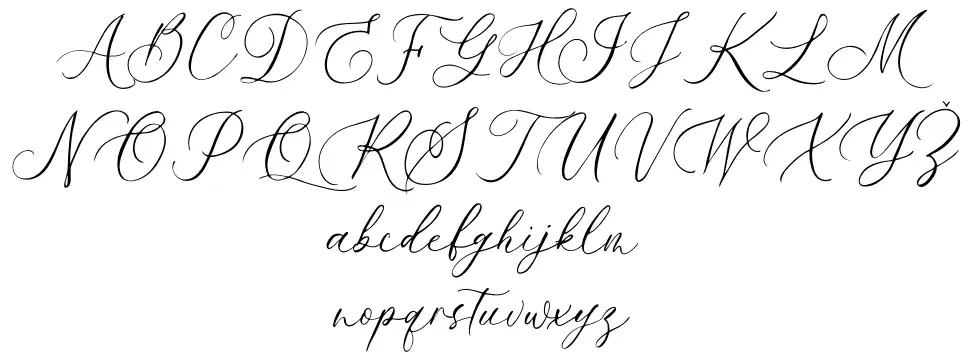 ABCDEFGHIJKLM
NOPQRSTUVWXYŽ
abcdefghijklm
nopqrstuvwxyz